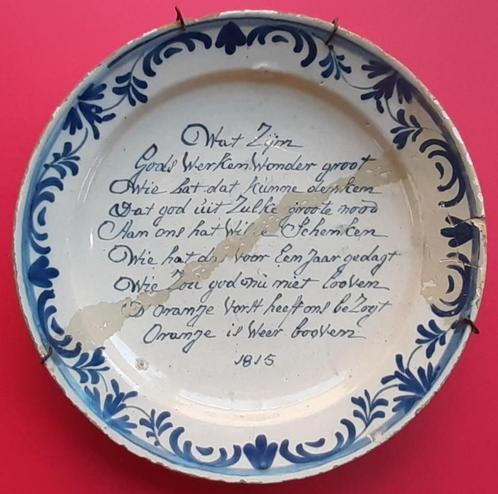 Wat Zijn
Gods Werken Wonder groot
Wie hat dat kunne denken
Dat god uit Zulke groote nood
Aan ons hat Schenken
Wie hat dat voor Een Jaar gedagt
Wie Zou god nu niet looven
D oranje Vorst heeft ons beZogt
Oranje is Weer booven
1815